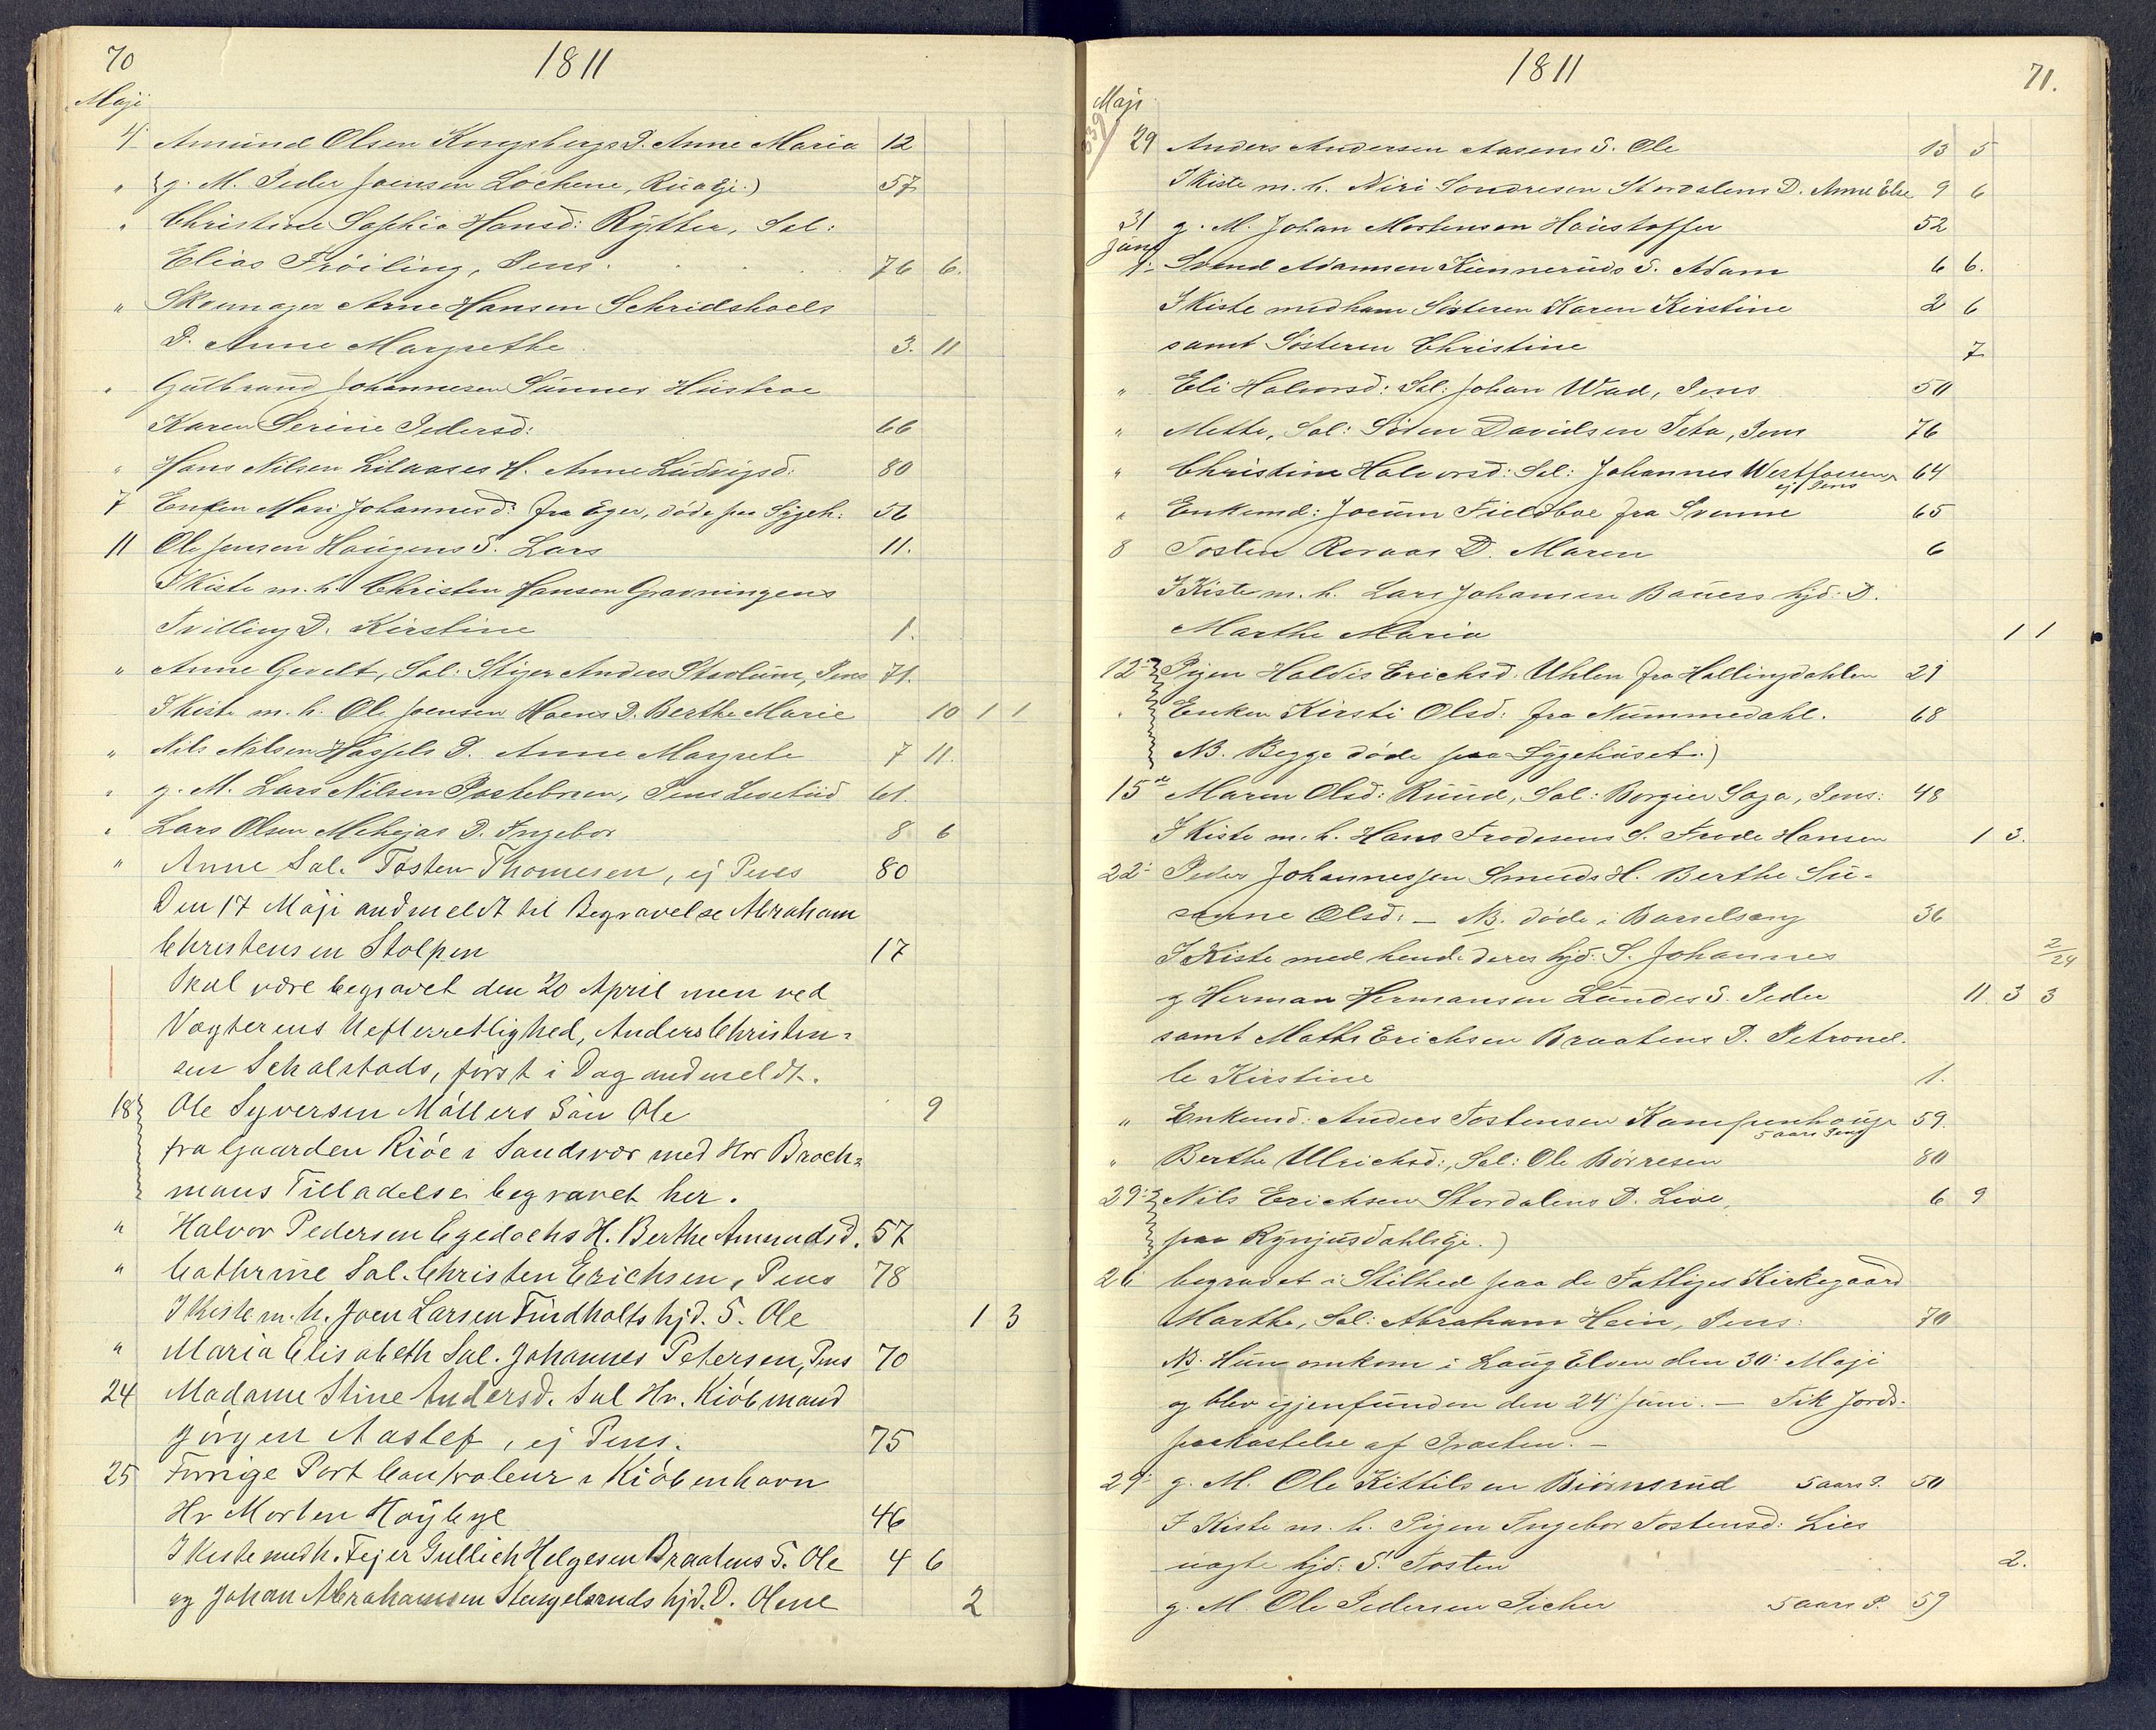 70
1811
Maji
4 Amund Olsen Kongsbergs D. Anne Maria 12
" g. M. Peder Joensen Løchene, 57
" Christine Sophia Hansd: Rytter, Sal:
Elias Frøiling, Pens. 76 6.
" Skoemager Arne Hansen
D. Anne Margrethe 3. 11
" Gulbrand Johannesen Sunnes Hustroe
Karen Serine Pedersd: 66
" Hans Nilsen Lilaases H. Anne Ludvigsd: 80
7 Enken Mari Johannesd: fra Eger, døde paa Sygeh: 56
11 Ole Jensen Haugens S. Lars 11.
I Kiste m. h. Christen Hansen Gravningens
Tvilling D. Kirstine 1.
" Anne Gevelt, Sal: Stiger Anders Stvolum, Pens 71.
I Kiste m. h. Ole Joensen Hoens D. Berthe Marie 10 1 1
" Nils Nilsen Hassels D. Anne Margrete 7 11.
" g. M. Lars Nilsen Postebroen, Pens Levetiid 61.
" Lars Olsen Mehejas D. Ingebor 8 6
" Anne Sal. Tosten Thomesen, ej Pens 80
Den 17 Maji andmeldt til Begravelse Abraham
Christensen Stolpen 17
Skal være begravet den 20 April men ved
Vogterens Uefterretlighed, Anders Christen=
sen Schalstads, først i Dag andmeldt.
18 Ole Syversen Møllers Søn Ole 9
fra Gaarden Kiøe i Sandsvær med Hrr Broch=
manns Tilladelse begravet her.
" Halvor Pedersen Egedachs H. Berthe Amundsd. 57
" Cathrine Sal. Christen Erichsen, Pens 78
I Kiste m. h. Joen Larsen Findholts hjd. S. Ole 1 3
" Maria Elisabeth Sal. Johannes Petersen, Pens 70
24 Madame Stine Andersd. Sal Hr. Kiøbmand
Jørgen Aaslef, ej Pens. 75
25 Forrige Port Contraleur i Kiøbenhavn
Hr Morten Høybye 46
I Kiste med h. Fejer Gullich Helgesen Braatens S. Ole 4 6
og Johan Abrahamsen Stengelsruds hjd. D. Olene 2
1811
71.
Maji
29 Anders Andersen Aasens S. Ole 13 5
I Kiste m. h. Niri Sondresen Stordalens D. Anne Else 9 6
31 g. M. Johan Mortensen Haustoffer 52
Juni
1: Svend Adamsen Kunneruds S. Adam 6 6.
I Kiste med ham Søsteren Karen Kirstine 2 6
samt Søsteren Christine 7
" Eli Halvorsd: Sal: Johan Wad, Pens 50
" Mette, Sal: Søren Davidsen Teta, Pens 76
" Christine Halvorsd: Sal: Johannes Wertfossen, 64
ej Pens
" Enkemd: Jocum Fieldboe fra Svenne 65
8 Tosten Revaas D. Maren 6
I Kiste m. h. Lars Johansen Bauers hjd: D.
Marthe Maria 1 1
12: Pigen Haldis Erichsd. Uhlen fra Hallingdahlen 21
Enken Kirsti Olsd: fra Nummedahl. 68
NB. Begge døde paa Sygehuset.)
15 Maren Olsd: Ruud, Sal: Borgier Saga, Pens: 48
I Kiste m. h. Hans Frodesens S. Frode Hansen 1 3.
22: Peder Johannessen Smeds H. Berthe Su=
sanne Olsd: — NB. døde i Barselsæng 36
I Kiste med hende deres hjd: S. Johannes 2/24
g Herman Hermansen Lundes S. Peder 11 3 3
samt Mathi Erichsen Braatens D. Petronel-
le Kirstine 1.
" Enkemd: Anders Tostensen Kampenhoug 59.
5 aars Pens
" Berthe Ulrichsd:, Sal: Ole Børresen 80
29: Nils Erichsen Stordalens D. Live, 6 9
paa Rynjusdahls
26 begravet i Stilhed paa de Fattiges Kirkegaard
Marthe, Sal: Abraham Hein, Pens: 70
NB. Hun omkom i Laug Elven den 30: Maji
og blev igjenfunden den 24: Juni. — Fik Jords-
paakastelse af Præsten. —
29: g. M. Ole Kittilsen Biørnsrud 5 aars P. 50
I Kiste m. h. Pigen Ingebor Tostensd: Lies
uægte hjd: S. Tosten 2.
g. M. Ole Pedersen Picher 5 aars P. 59